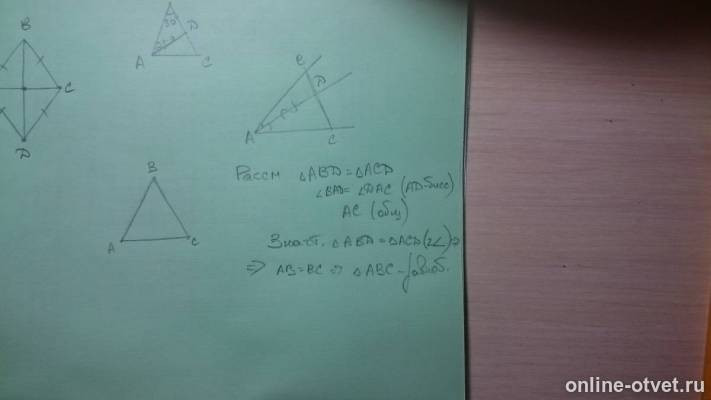 B
C
D
30°
D
A
C
D
A
C
B
A
C
Рассм △ABD = △ACD
∠BAD = ∠DAC (AD-бисс)
AC (общ)
Значит. △ABD = △ACD (2∠) ⇒
⇒ AB = BC ⇒ △ABC -
online-otvet.ru